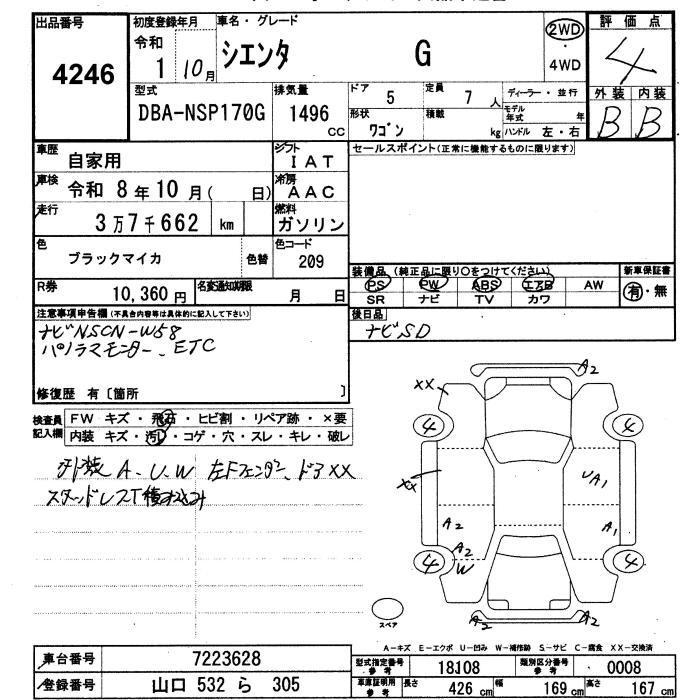 出品番号 初度登録年月 車名・グレード 評価点
4246 令和 1 10月 シエンタ G 2WD 4WD 4
型式 排気量 ドア 5 定員 7 人 ディーラー・並行 外装 内装
DBA-NSP170G 1496 CC 形状 ワゴン 積載 kg モデル年式 年 ハンドル 左・右 B B
車歴 自家用 シフト IAT セールスポイント(正常に機能するものに限ります)
車検 令和 8年 10月( 日) 冷房 AAC
走行 3万7千662 km 燃料 ガソリン
色 ブラックマイカ 色替 色コード 209
装備品 (純正品に限り○をつけてください) 新車保証書
PS PW ABS エアB AW 有・無
SR ナビ TV カワ
R券 10,360円 名変通知期限 月 日
後日品
注意事項申告欄(不具合内容等は具体的に記入して下さい)
ナビSD
ナビNSCN-W58
パノラマモニター、ETC
修復歴 有〔箇所 〕
検査員記入欄 FW キズ・飛石・ヒビ割・リペア跡・×要
内装 キズ・汚れ・コゲ・穴・スレ・キレ・破レ
外装 A、U、W 左Fフェンダー、ドアXX
スタッドレスT積込み
A2
XX
4 4
XX
UA1
A2 A1
A2
4 W 4
A2 A2
スペア
A-キズ E-エクボ U-凹み W-補修跡 S-サビ C-腐食 XX-交換済
車台番号 7223628
型式指定番号 参考 18108 類別区分番号 参考 0008
登録番号 山口 532 ら 305
車庫証明用 参考 長さ 426 cm 幅 169 cm 高さ 167 cm